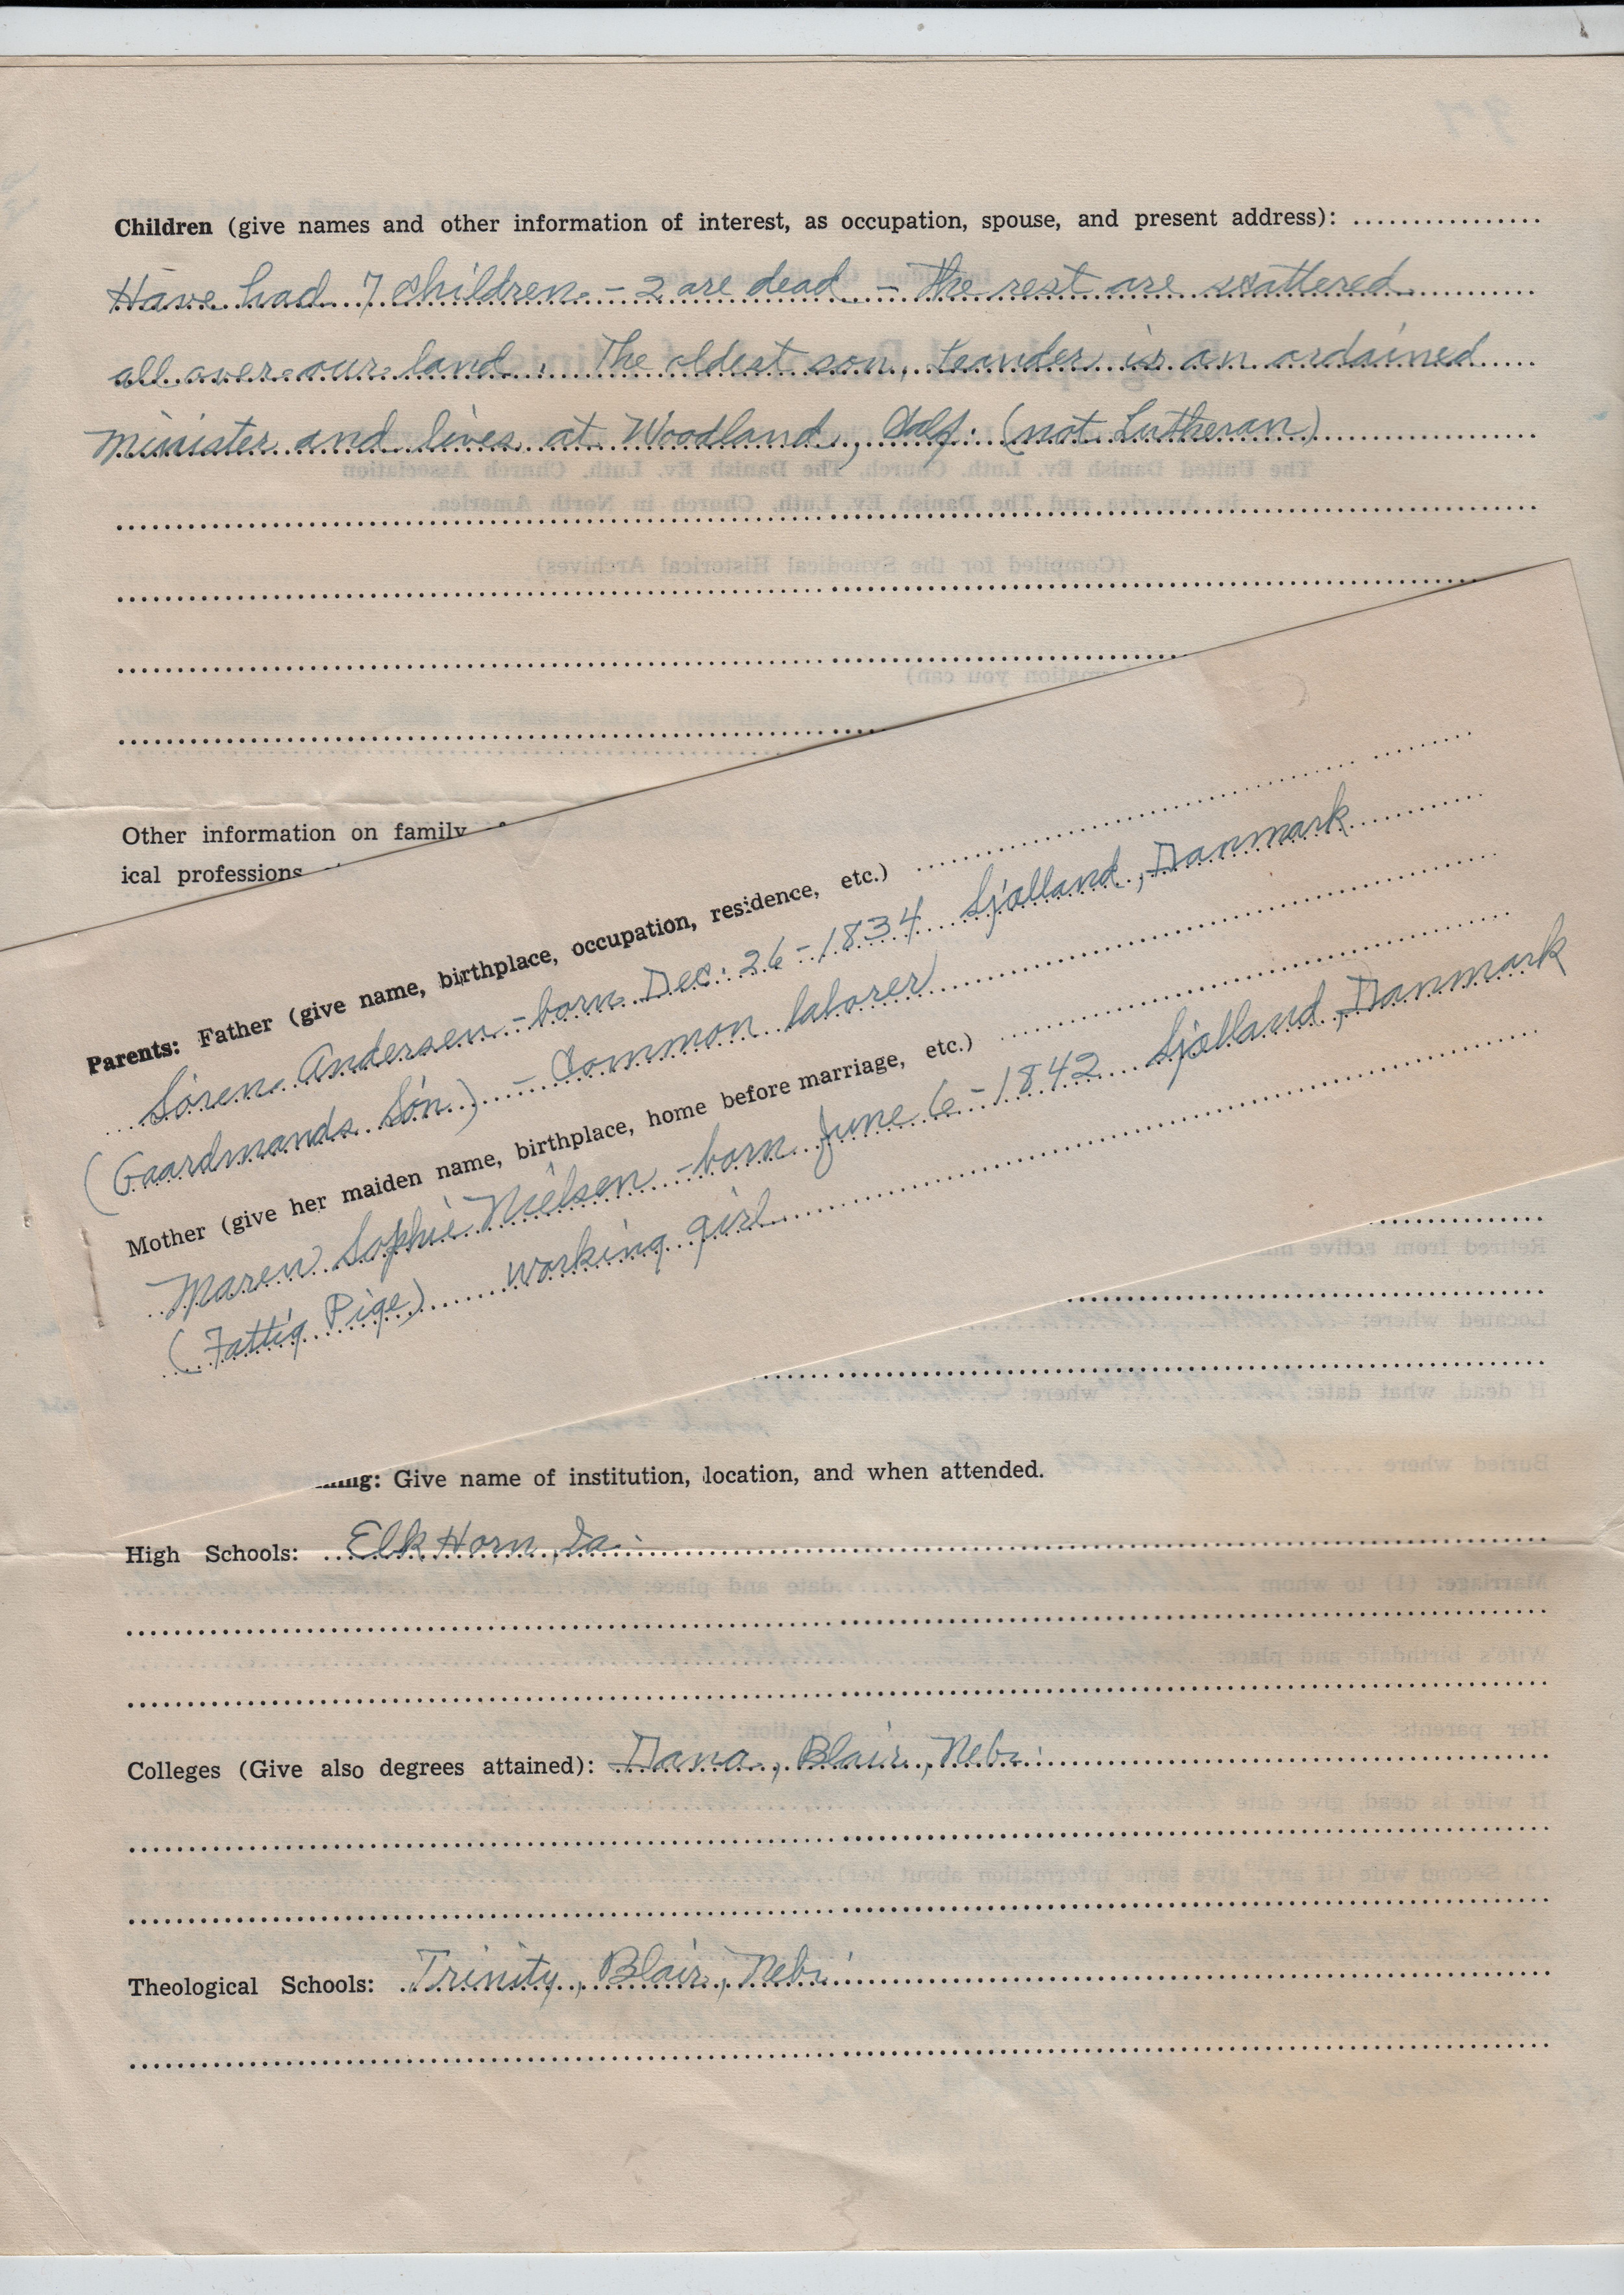 Children (give names and other information of interest, as occupation, spouse, and present address):
Have had 7 children - 2 are dead - The rest are scattered
all over our land. The oldest son, Leander is an ordained
minister and lives at Woodland, Calif. (not Lutheran)
Other information on family
ical professions
Parents: Father (give name, birthplace, occupation, residence, etc.)
Sören Andersen - born Dec. 26 - 1834 Sjælland, Danmark
(Gaardmands Sön) - Common laborer
Mother (give her maiden name, birthplace, home before marriage, etc.)
Maren Sophie Nielsen - born June 6 - 1842 Sjælland, Danmark
(Fattig Pige) Working girl
Give name of institution, location, and when attended.
High Schools: Elk Horn, Ia.
Colleges (Give also degrees attained): Dana, Blair, Nebr.
Theological Schools: Trinity, Blair, Nebr.